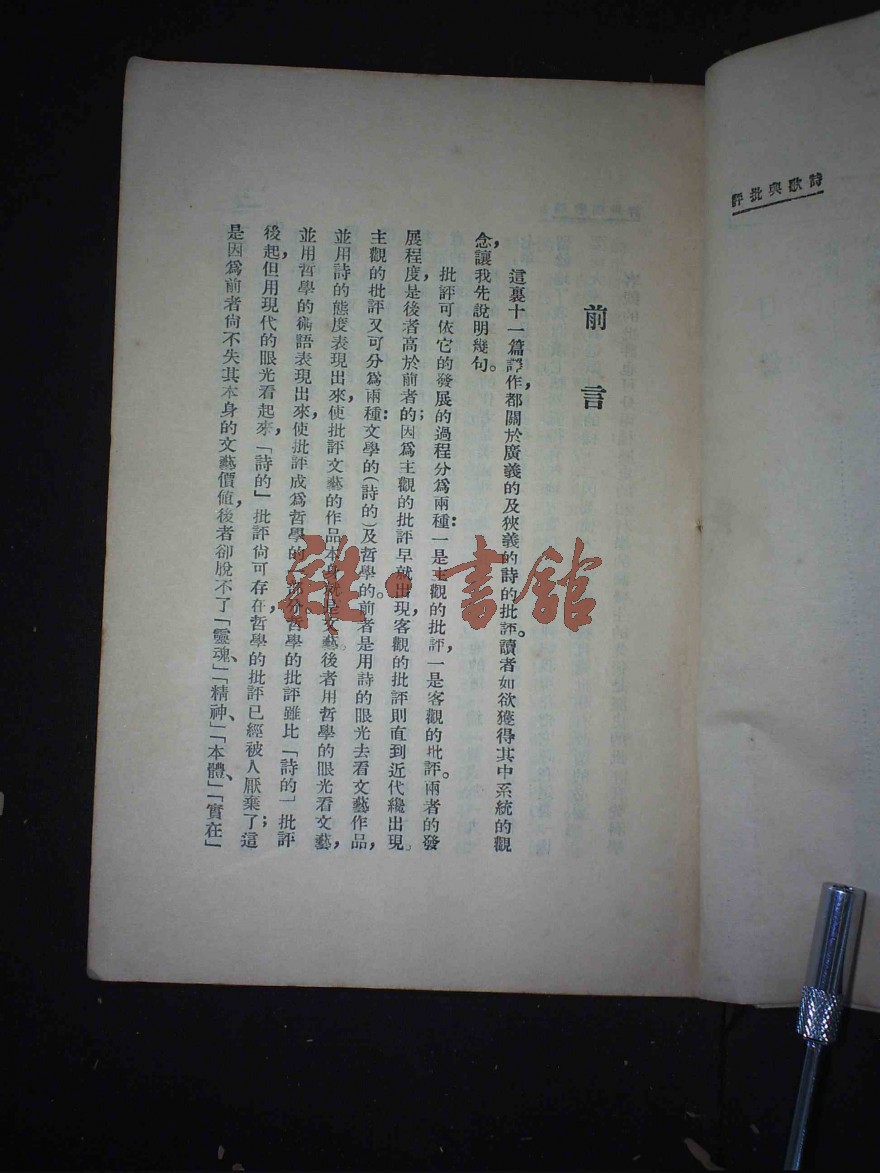 詩歌與批評
前言
這裏十一篇譯作，都關於廣義的及狹義的詩的批評。讀者如欲獲得其中系統的觀
念，讓我先說明幾句。
批評可依它的發展的過程分爲兩種：一是主觀的批評，一是客觀的批評。兩者的發
展程度是後者高於前者的；因爲主觀的批評早就出現，客觀的批評則直到近代纔出現。
主觀的批評又可分爲兩種：文學的（詩的）及哲學的。前者是用詩的眼光去看文藝作品，
並用詩的態度表現出來，使批評文藝的作品本身就是文藝。後者用哲學的眼光看文藝，
並用哲學的術語表現出來，使批評成爲哲學的一部分。哲學的批評雖比「詩的」批評
後起，但用現代的眼光看起來，「詩的」批評尙可存在，哲學的批評已經被人厭棄了；這
是因爲前者尙不失其本身的文藝價値，後者卻脫不了「靈魂、」「精神、」「本體、」「實在」
雜·書館